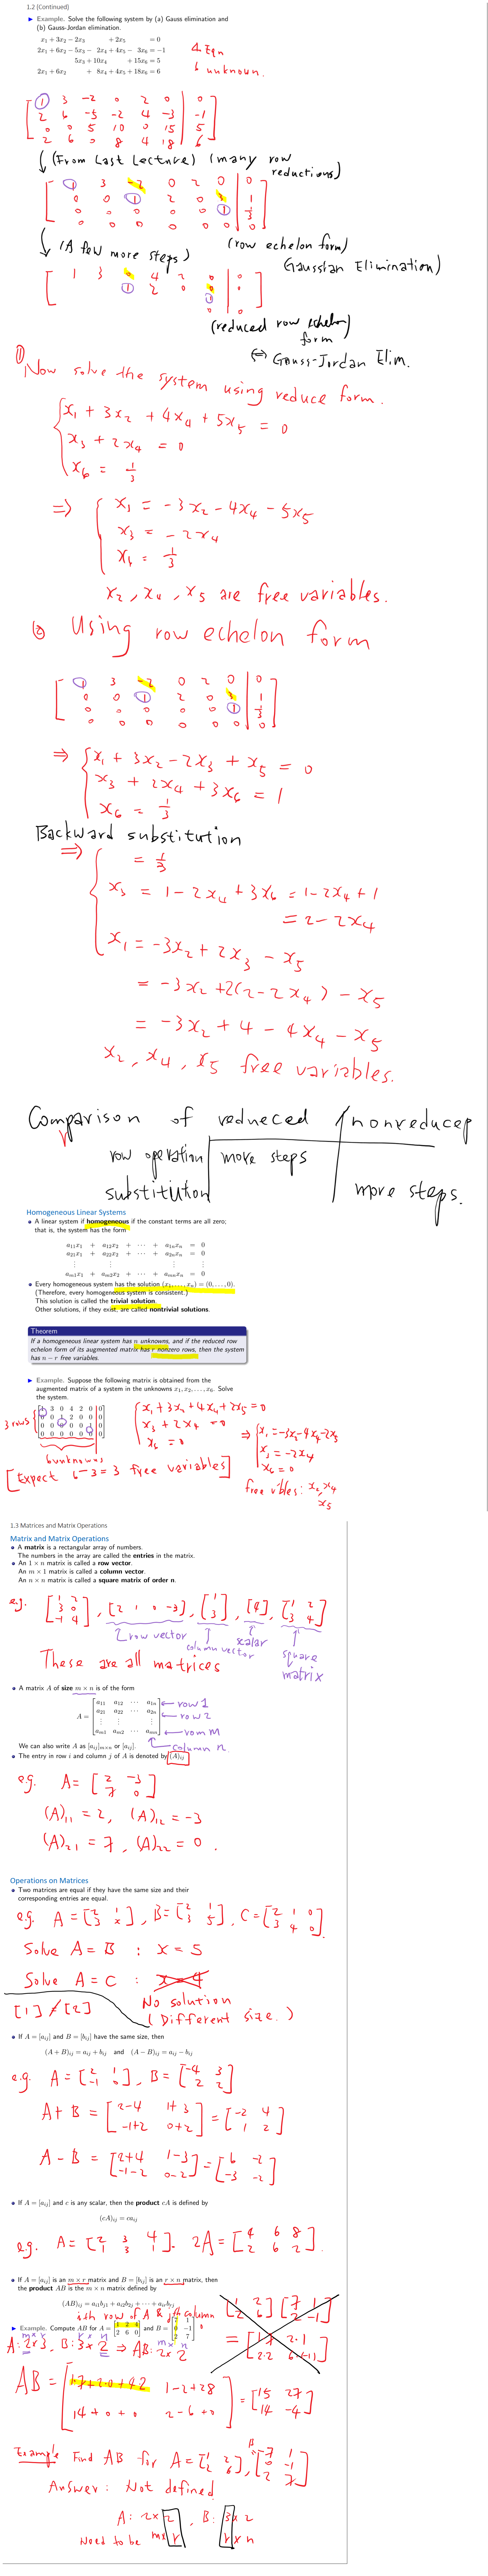 1.2 (Continued)
Example. Solve the following system by (a) Gauss elimination and
(b) Gauss-Jordan elimination.
x1 + 3x2 − 2x3 + 2x5 = 0
2x1 + 6x2 − 5x3 − 2x4 + 4x5 − 3x6 = −1
5x3 + 10x4 + 15x6 = 5
2x1 + 6x2 + 8x4 + 4x5 + 18x6 = 6
4 Eqn
6 unknown.
1 3 -2 0 2 0 | 0
2 6 -5 -2 4 -3 | -1
0 0 5 10 0 15 | 5
2 6 0 8 4 18 | 6
(From Last Lecture) (many row
reductions)
1 3 -2 0 2 0 | 0
0 0 1 2 0 3 | 1
0 0 0 0 0 1 | 1/3
0 0 0 0 0 0 | 0
(A few more steps)
(row echelon form)
Gaussian Elimination)
1 3 0 4 2 0
1 2 0
(reduced row echelon)
form
⇔ Gauss-Jordan Elim.
① Now solve the system using reduce form.
x1 + 3x2 + 4x4 + 5x5 = 0
x3 + 2x4 = 0
x6 = 1/3
⇒ x1 = -3x2 - 4x4 - 5x5
x3 = -2x4
x6 = 1/3
x2, x4, x5 are free variables.
② Using row echelon form
1 3 -2 0 2 0 | 0
0 0 1 2 0 3 | 1
0 0 0 0 0 1 | 1/3
0 0 0 0 0 0 | 0
⇒ x1 + 3x2 - 2x3 + x5 = 0
x3 + 2x4 + 3x6 = 1
x6 = 1/3
Backward substitution
⇒ = 1/3
x3 = 1 - 2x4 + 3x6 = 1 - 2x4 + 1
= 2 - 2x4
x1 = -3x2 + 2x3 - x5
= -3x2 + 2(2 - 2x4) - x5
= -3x2 + 4 - 4x4 - x5
x2, x4, x5 free variables.
Comparison of reduced / nonreduced
row operation more steps
substitution more steps.
Homogeneous Linear Systems
A linear system if homogeneous if the constant terms are all zero;
that is, the system has the form
a11x1 + a12x2 + ⋯ + a1nxn = 0
a21x1 + a22x2 + ⋯ + a2nxn = 0
⋮ ⋮ ⋮ ⋮
am1x1 + am2x2 + ⋯ + amnxn = 0
Every homogeneous system has the solution (x1, . . . , xn) = (0, . . . , 0).
(Therefore, every homogeneous system is consistent.)
This solution is called the trivial solution.
Other solutions, if they exist, are called nontrivial solutions.
Theorem
If a homogeneous linear system has n unknowns, and if the reduced row
echelon form of its augmented matrix has r nonzero rows, then the system
has n − r free variables.
Example. Suppose the following matrix is obtained from the
augmented matrix of a system in the unknowns x1, x2, . . . , x6. Solve
the system.
1 3 0 4 2 0 | 0
0 0 1 2 0 0 | 0
0 0 0 0 0 1 | 0
0 0 0 0 0 0 | 0
3 rows
6 unknowns
[Expect 6-3=3 free variables]
x1 + 3x2 + 4x4 + 2x5 = 0
x3 + 2x4 = 0
x6 = 0
⇒ x1 = -3x2 - 4x4 - 2x5
x3 = -2x4
x6 = 0
free vbles: x2, x4
x5
1.3 Matrices and Matrix Operations
Matrix and Matrix Operations
A matrix is a rectangular array of numbers.
The numbers in the array are called the entries in the matrix.
An 1 × n matrix is called a row vector.
An m × 1 matrix is called a column vector.
An n × n matrix is called a square matrix of order n.
e.g. [1 2 3 0 -1 4], [2 1 0 -3], [1 3], [4], [1 2 3 4]
row vector
column vector
scalar
square
matrix
These are all matrices
A matrix A of size m × n is of the form
A = a11 a12 ⋯ a1n ← row 1
a21 a22 ⋯ a2n ← row 2
⋮ ⋮ ⋮
am1 am2 ⋯ amn ← row m
column n
We can also write A as [aij]m×n or [aij].
The entry in row i and column j of A is denoted by (A)ij
e.g. A = [2 -3 7 0]
(A)11 = 2, (A)12 = -3
(A)21 = 7, (A)22 = 0.
Operations on Matrices
Two matrices are equal if they have the same size and their
corresponding entries are equal.
e.g. A = [2 1 3 x], B = [2 1 3 5], C = [2 1 0 3 4 0]
Solve A = B : x = 5
Solve A = C : x = 4
[1] ≠ [2]
No solution
(Different size.)
If A = [aij] and B = [bij] have the same size, then
(A + B)ij = aij + bij and (A − B)ij = aij − bij
e.g. A = [2 1 -1 0], B = [-4 3 2 2]
A + B = [2-4 1+3 -1+2 0+2] = [-2 4 1 2]
A - B = [2+4 1-3 -1-2 0-2] = [6 -2 -3 -2]
If A = [aij] and c is any scalar, then the product cA is defined by
(cA)ij = caij
e.g. A = [2 3 4 1 3 1]. 2A = [4 6 8 2 6 2].
If A = [aij] is an m × r matrix and B = [bij] is an r × n matrix, then
the product AB is the m × n matrix defined by
(AB)ij = ai1b1j + ai2b2j + ⋯ + airbrj
ith row of A & jth column
Example. Compute AB for A = [1 2 4 2 6 0] and B = [7 1 0 −1 2 7]
A: 2×3, B: 3×2 ⇒ AB: 2×2
[1 2 2 6][7 1 2 -1]
= [1·7 2·1 2·2 6·(-1)]
AB = [1·7+2·0+4·2 1-2+28 14+0+0 2-6+0] = [15 27 14 -4]
Example Find AB for A = [1 2 2 6], B = [7 1 0 -1 2 7]
Answer: Not defined
A: 2×2, B: 3×2
Need to be m×r r×n